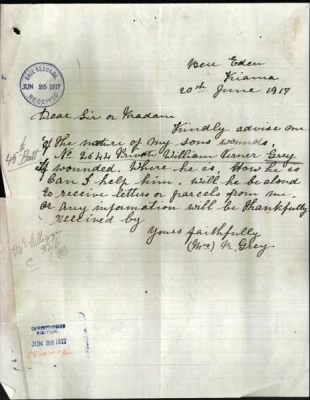 Ben Eden
Kiama
20th June 1917
BASE RECORDS
JUN 26 1917
RECEIVED
Dear Sir or Madam
Kindly advise me
Of The nature of my sons wounds
No 2644 Private William Verner Grey
If wounded. Where he is, How he is
Can I help him, will he be alowd
to receive letters or parcels from me
Or any information will be thankfully
received by
Yours faithfully
(Mrs) M. Grey
45 Batt
JUN 26 1917